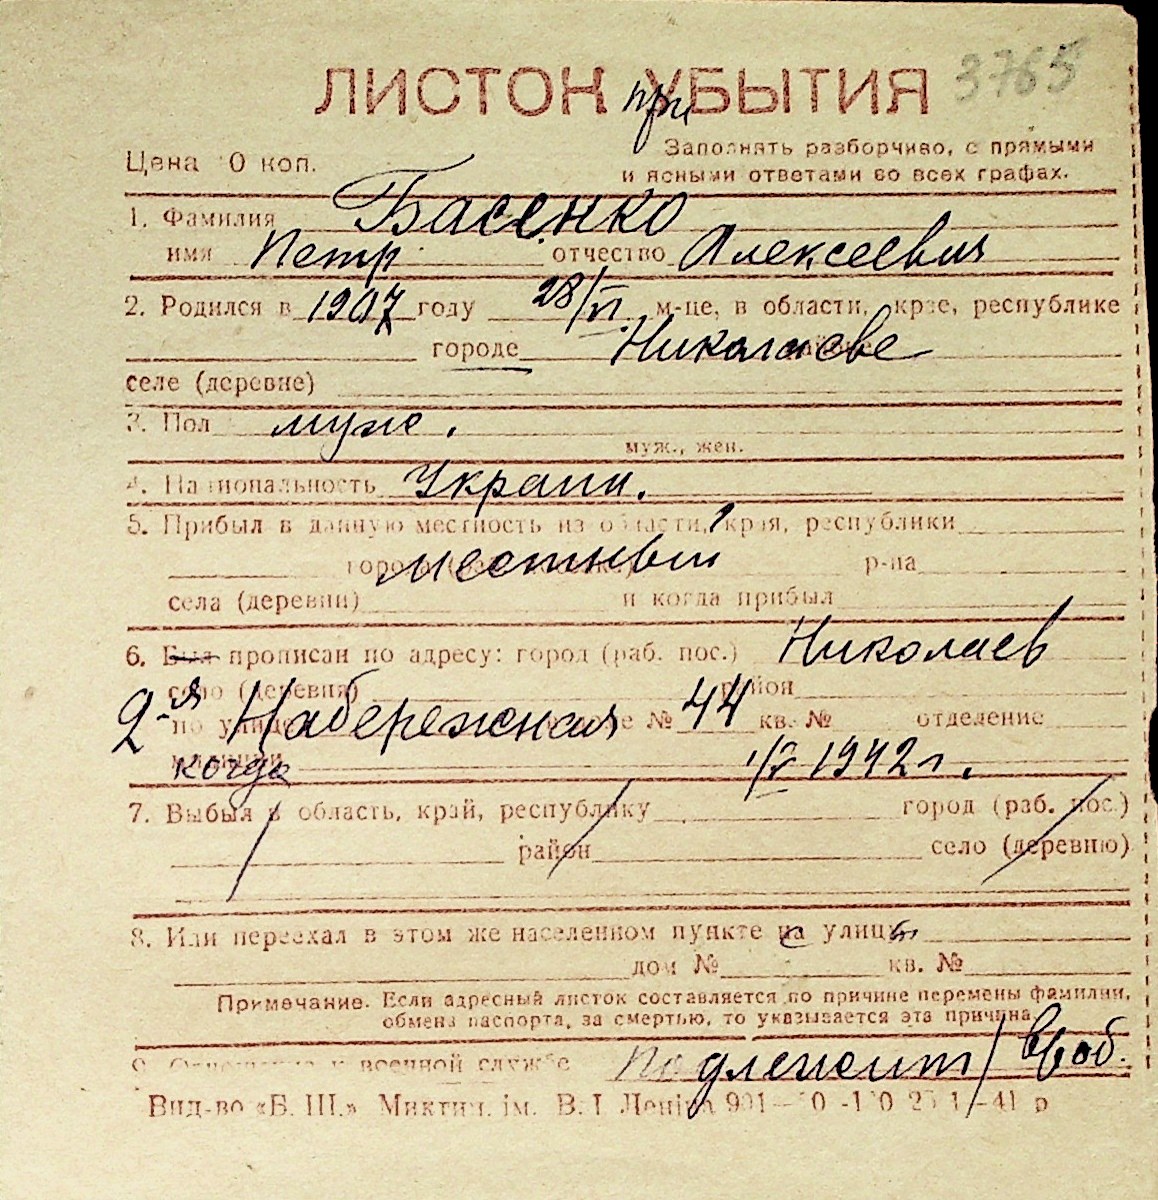 3765
ЛИСТОК УБЫТИЯ
при
Цена 10 коп.
Заполнять разборчиво, с прямыми
и ясными ответами во всех графах.
1. Фамилия Басенко
имя Петр отчество Алексеевич
2. Родился в 1907 году 28/VI м-це, в области, крае, республике
городе Николаеве
селе (деревне)
3. Пол муже.
муж., жен.
4. Национальность Украин.
5. Прибыл в данную местность из области, края, республики
города местный р-на
села (деревни) и когда прибыл
6. Был прописан по адресу: город (раб. пос.) Николаев
село (деревня) район
по улице 2-я Набережная № 44 кв. № отделение
милиции когда 1/V 1942 г.
7. Выбыл в область, край, республику город (раб. пос.)
район село (деревню)
8. Или переехал в этом же населенном пункте на улицу
дом № кв. №
Примечание. Если адресный листок составляется по причине перемены фамилии,
обмена паспорта, за смертью, то указывается эта причина
9. Отношение к военной службе подлежит/
Вид-во «Б. Ш.» Микт. ім. В. І. Леніна